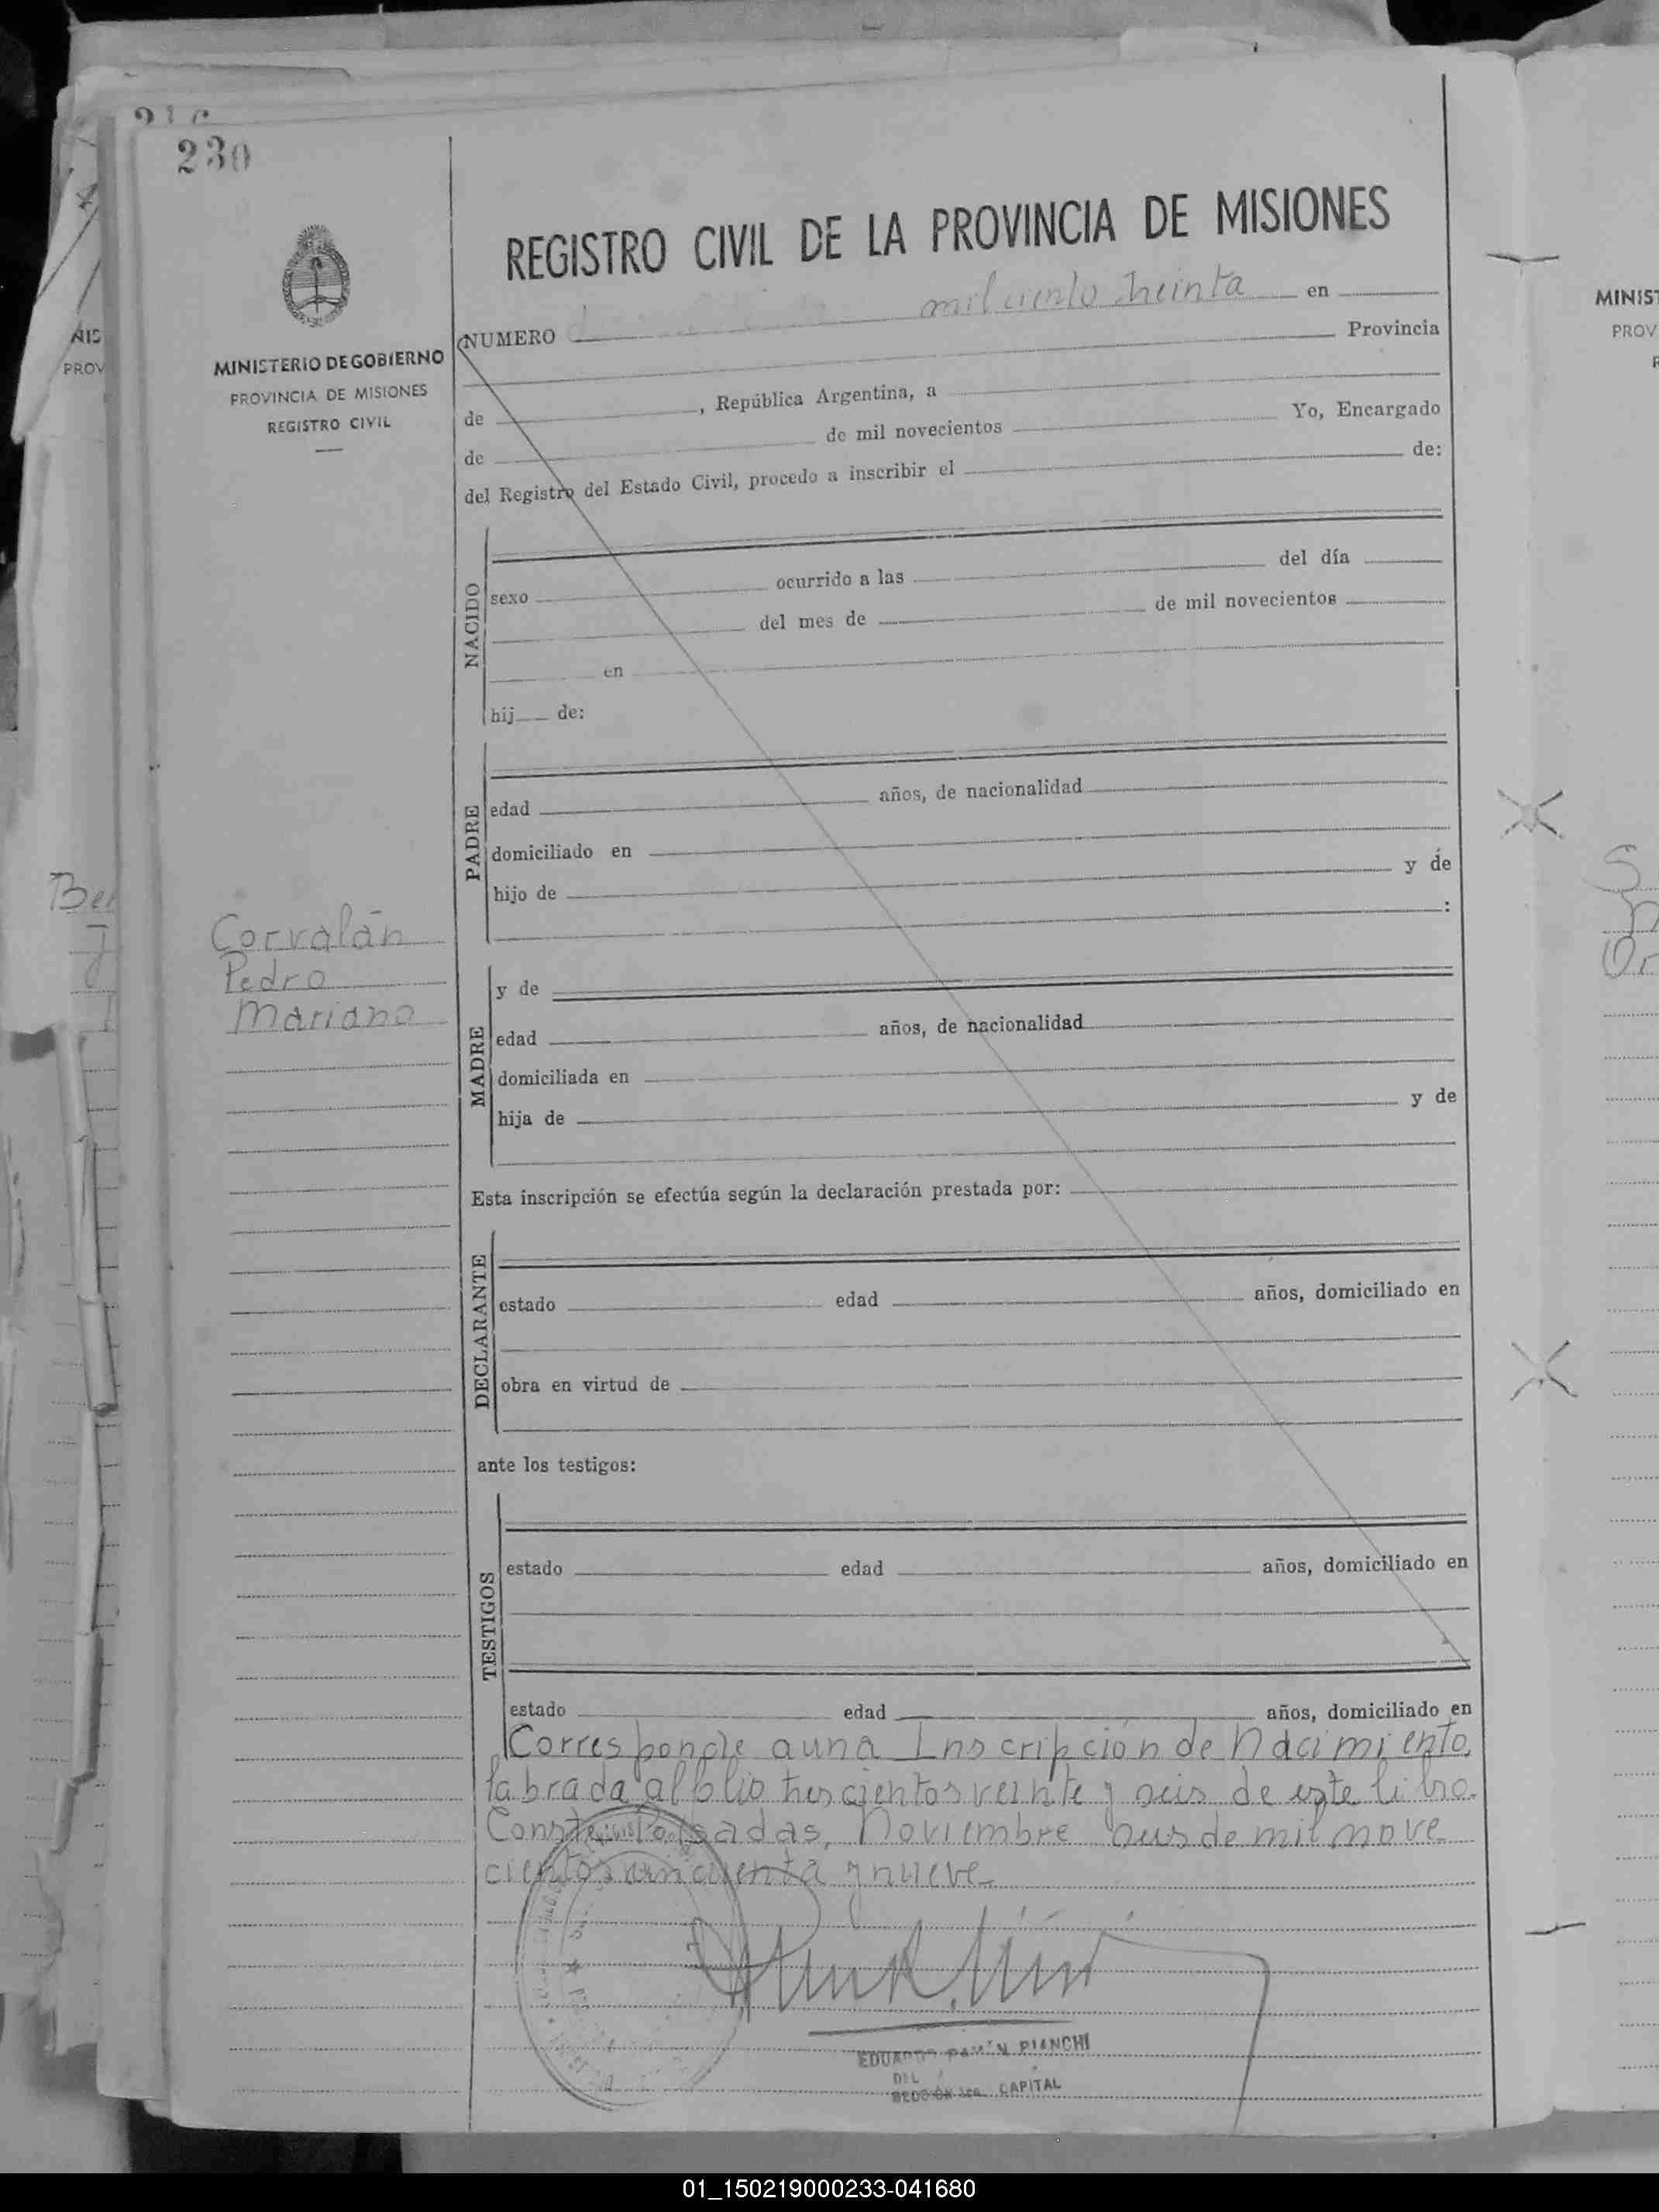 230
MINISTERIO DE GOBIERNO
PROVINCIA DE MISIONES
REGISTRO CIVIL
REGISTRO CIVIL DE LA PROVINCIA DE MISIONES
NUMERO mil ciento treinta en
Provincia
de , República Argentina, a
de de mil novecientos Yo, Encargado
del Registro del Estado Civil, procedo a inscribir el de:
NACIDO
sexo ocurrido a las del día
del mes de de mil novecientos
en
hij de:
PADRE
edad años, de nacionalidad
domiciliado en
hijo de y de
:
Corvalán
Pedro
Mariano
MADRE
y de
edad años, de nacionalidad
domiciliada en
hija de y de
Esta inscripción se efectúa según la declaración prestada por:
DECLARANTE
estado edad años, domiciliado en
obra en virtud de
ante los testigos:
TESTIGOS
estado edad años, domiciliado en
estado edad años, domiciliado en
Corresponde a una Inscripción de Nacimiento,
labrada al folio trescientos veinte y seis de este libro.
Conste. Posadas, Noviembre seis de mil nove
cientos cincuenta y nueve
EDUARDO RAMÓN BIANCHI
DEL
SECCIÓN 1ra. CAPITAL
MINIST
PROV
01_150219000233-041680